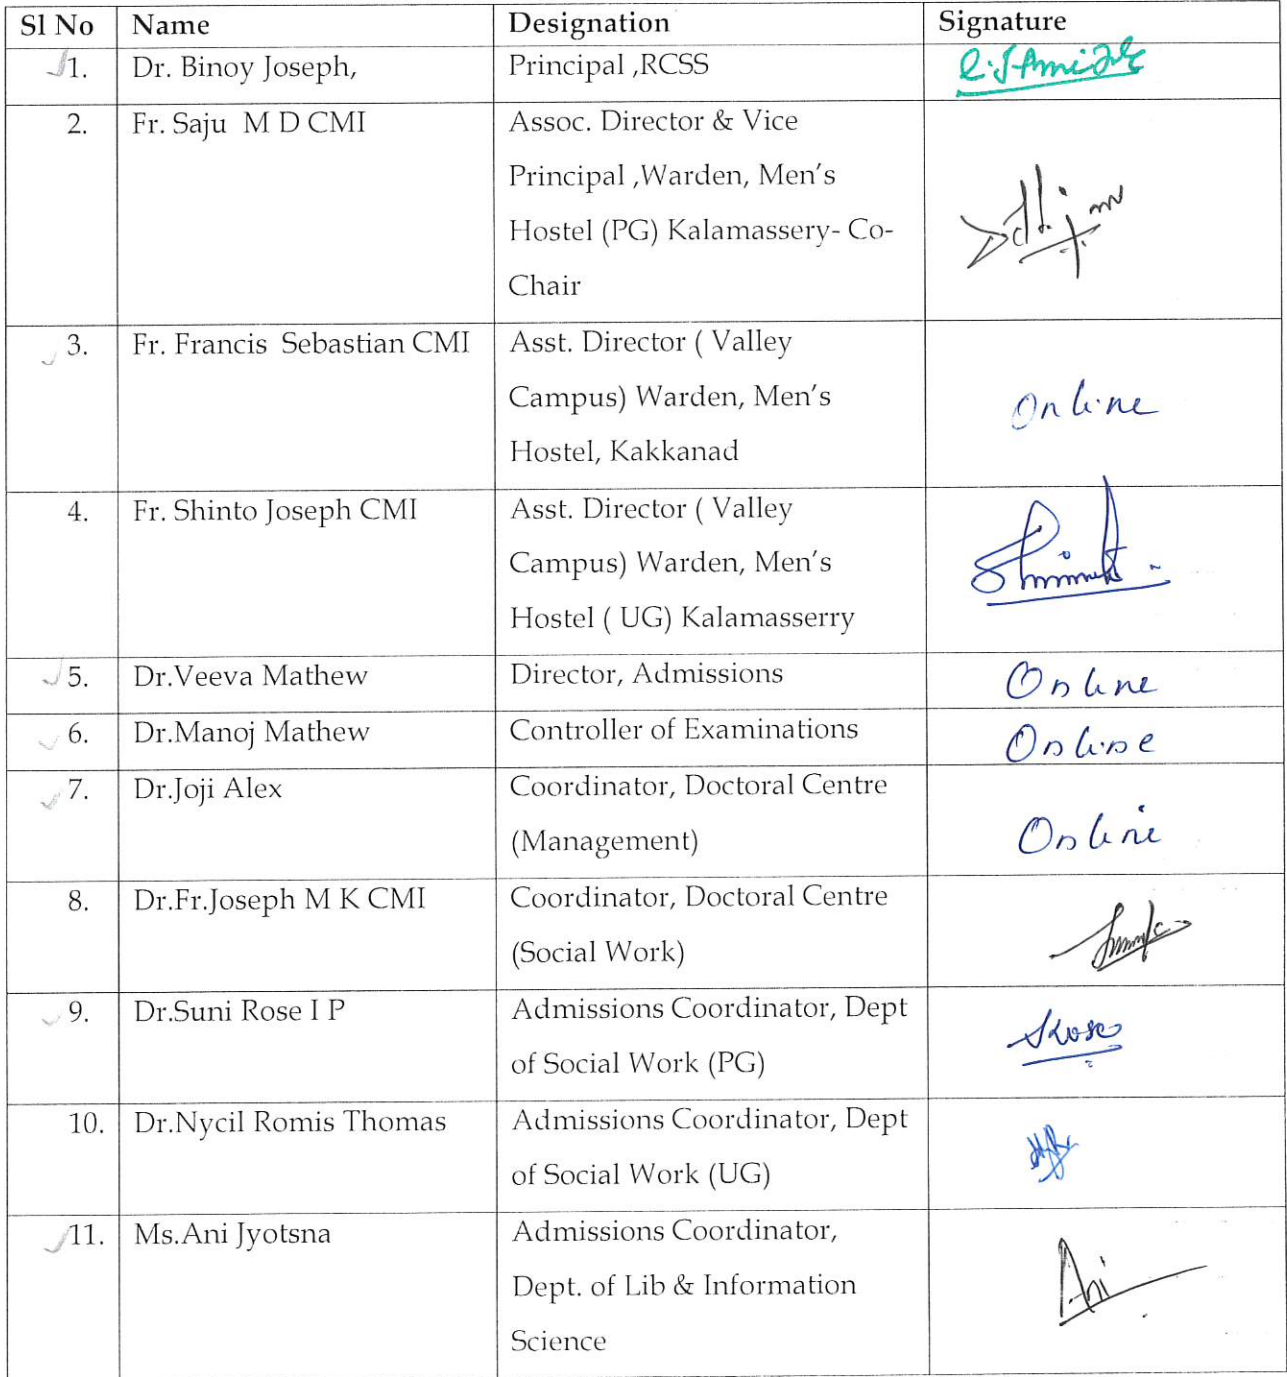 Sl No Name Designation Signature
1. Dr. Binoy Joseph, Principal ,RCSS
2. Fr. Saju M D CMI Assoc. Director & Vice
Principal ,Warden, Men's
Hostel (PG) Kalamassery- Co-
Chair
3. Fr. Francis Sebastian CMI Asst. Director ( Valley
Campus) Warden, Men's
Online
Hostel, Kakkanad
4. Fr. Shinto Joseph CMI Asst. Director ( Valley
Campus) Warden, Men's
Hostel ( UG) Kalamasserry
5. Dr.Veeva Mathew Director, Admissions Online
6. Dr.Manoj Mathew Controller of Examinations Online
7. Dr.Joji Alex Coordinator, Doctoral Centre
(Management) Online
8. Dr.Fr.Joseph M K CMI Coordinator, Doctoral Centre
(Social Work)
9. Dr.Suni Rose I P Admissions Coordinator, Dept
of Social Work (PG)
10. Dr.Nycil Romis Thomas Admissions Coordinator, Dept
of Social Work (UG)
11. Ms.Ani Jyotsna Admissions Coordinator,
Dept. of Lib & Information
Ani
Science